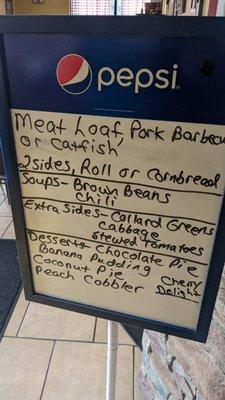 pepsi
Meat Loaf, Pork Barbecu
or Catfish
2 sides, Roll or Cornbread
Soups- Brown Beans
Chili
Extra Sides- Collard Greens
Cabbage
Stewed Tomatoes
Desserts- Chocolate Pie
Banana Pudding
Coconut Pie Cherry
Peach Cobbler Delight